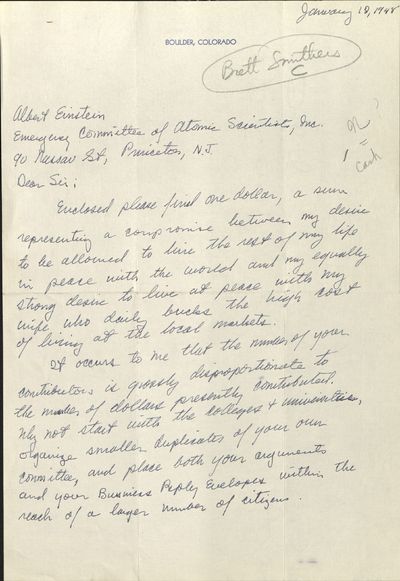 January 18, 1948
BOULDER, COLORADO
Brett Smithers
C
Albert Einstein
Emergency Committee of Atomic Scientists, Inc.
90 Nassau St, Princeton, N.J.
1
cash
Dear Sir;
Enclosed please find one dollar, a sum
representing a compromise between my desire
to be allowed to live the rest of my life
in peace with the world and my equally
strong desire to live at peace with my
wife who daily bucks the high cost
of living at the local markets.
It occurs to me that the number of your
contributors is grossly disproportionate to
the number of dollars presently contributed.
Why not start with the colleges & universities,
organize smaller duplicates of your own
committee, and place both your arguments
and your Business Reply Envelopes within the
reach of a larger number of citizens.